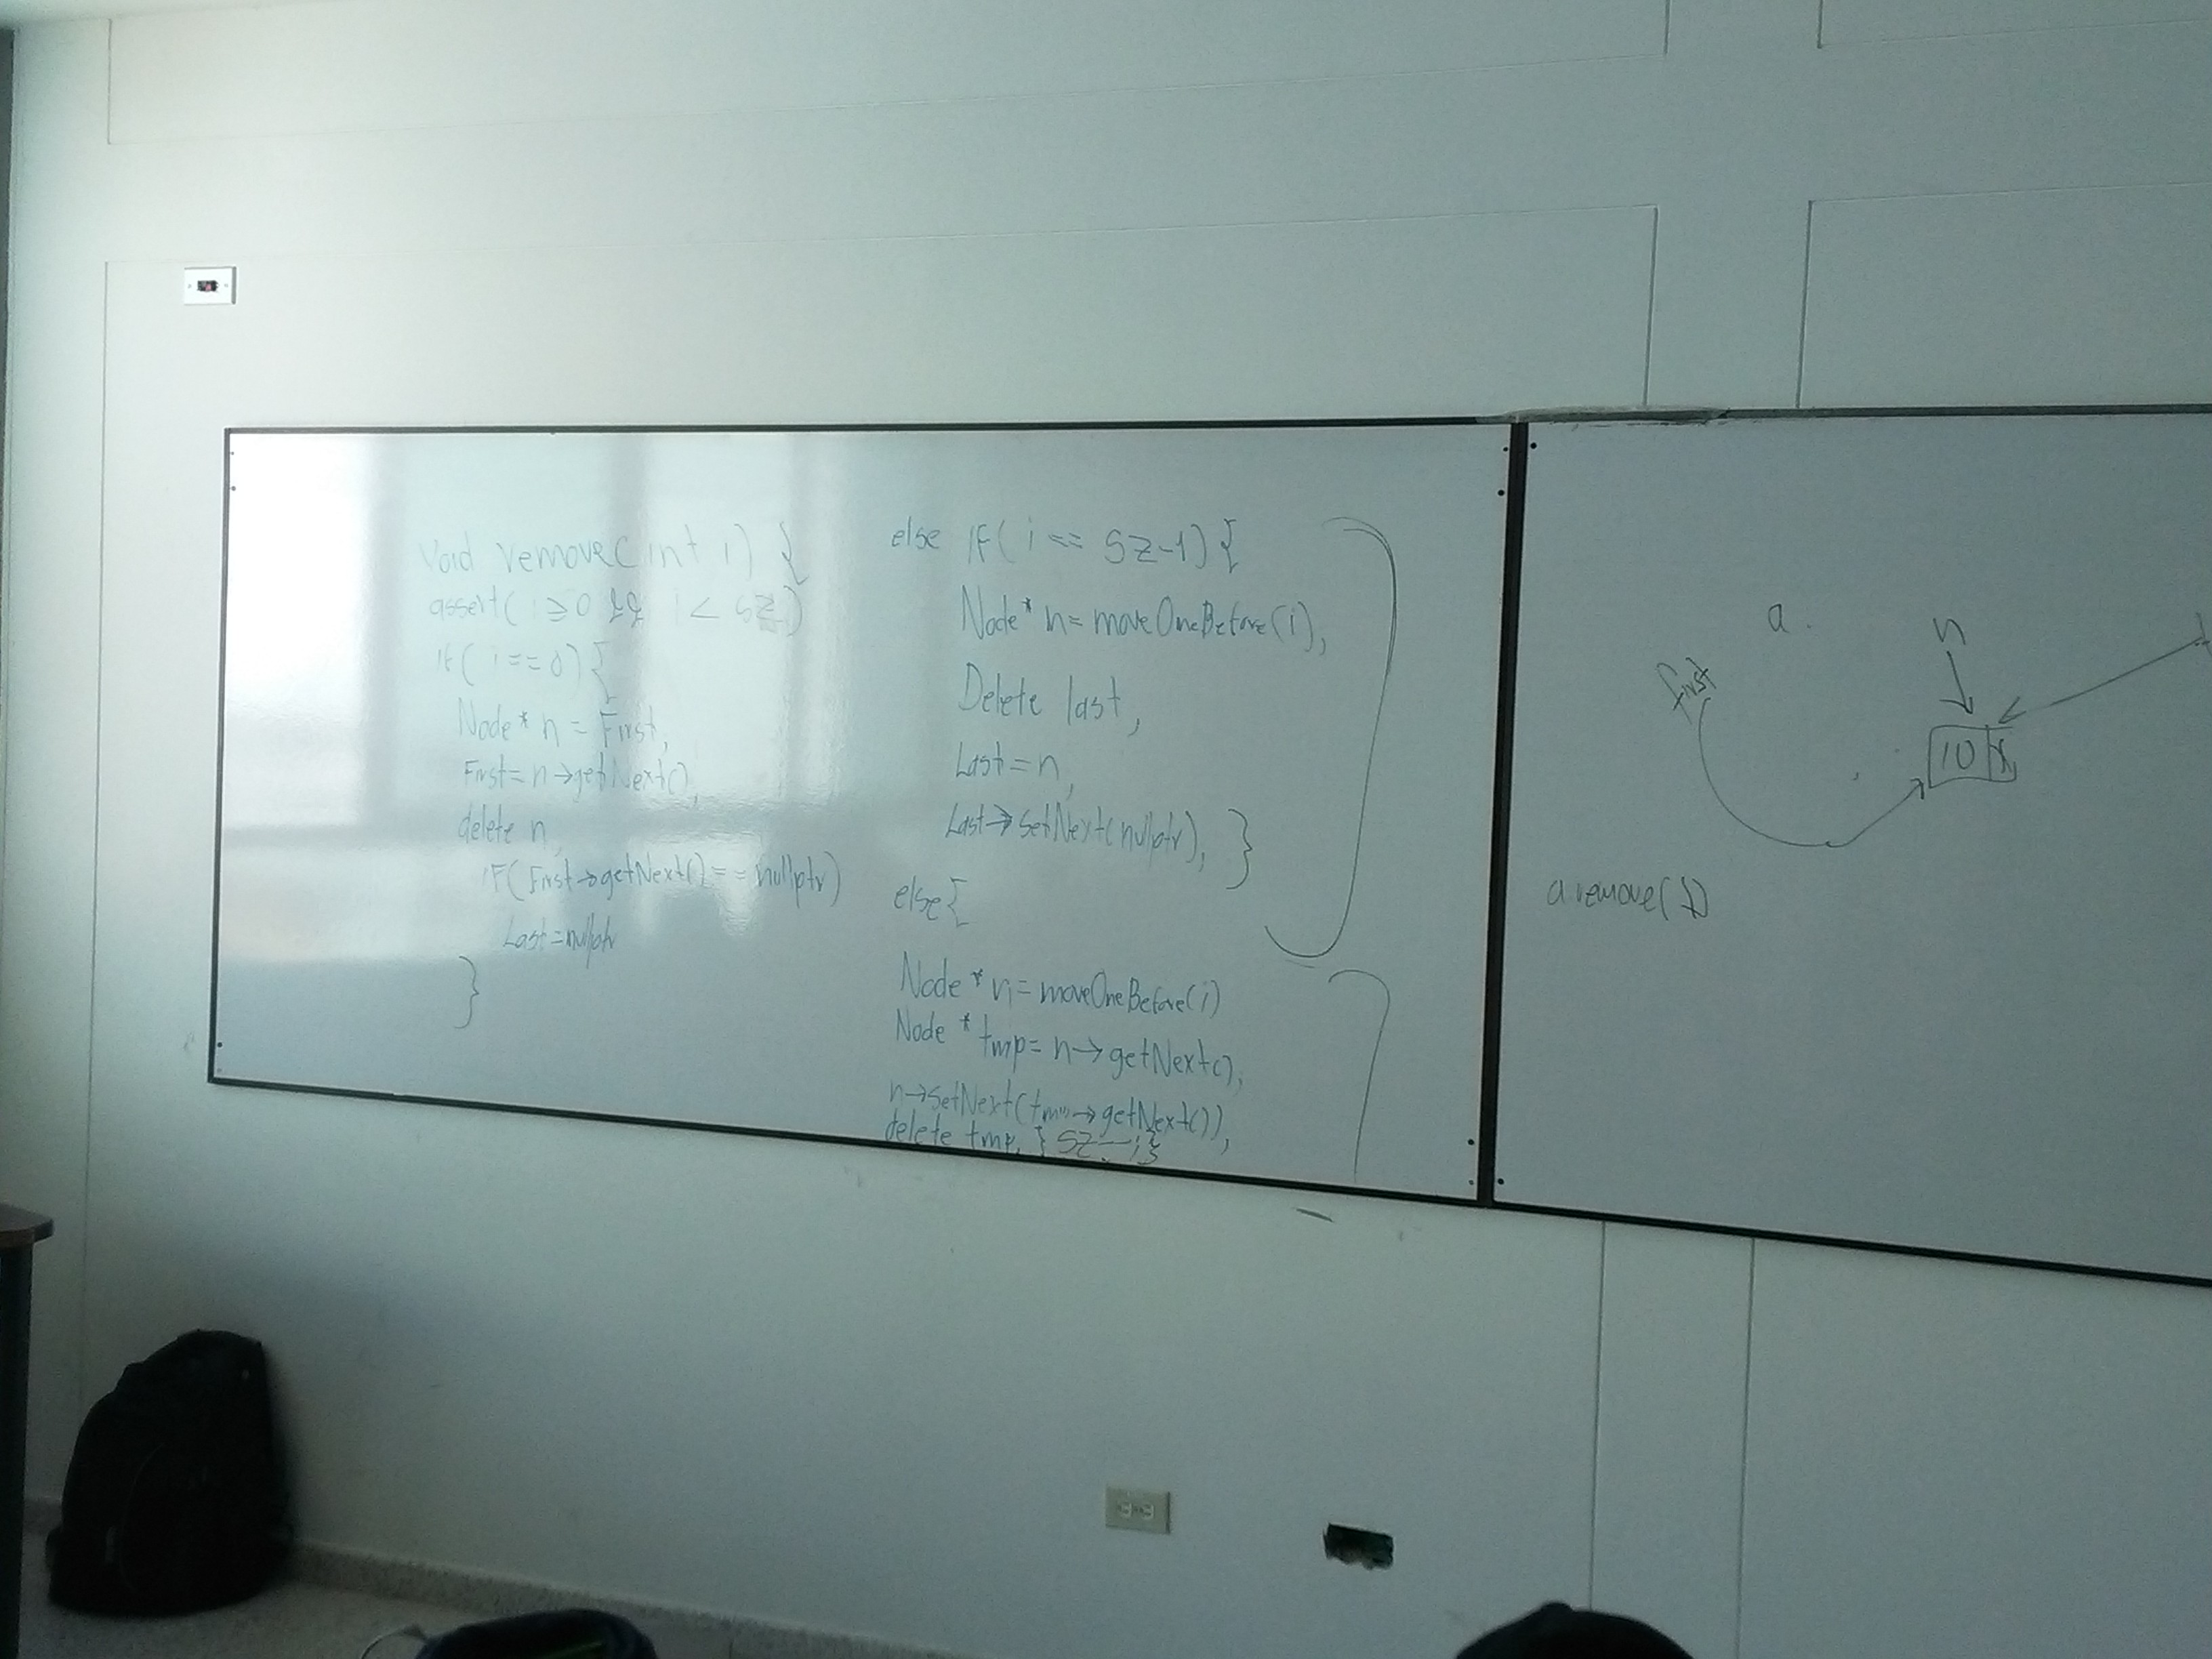 void remove(int i) {
assert( i ≥ 0 && i < sz )
if( i == 0) {
Node* n = First;
First = n→getNext();
delete n;
if(First→getNext() == nullptr)
Last = nullptr
}
else if( i == sz-1) {
Node* n = moveOneBefore(i);
Delete last;
Last = n;
Last→setNext(nullptr); }
else {
Node* n = moveOneBefore(i)
Node* tmp = n→getNext();
n→setNext(tmp→getNext());
delete tmp; } sz--; }
a.
n
first
10
a remove(1)